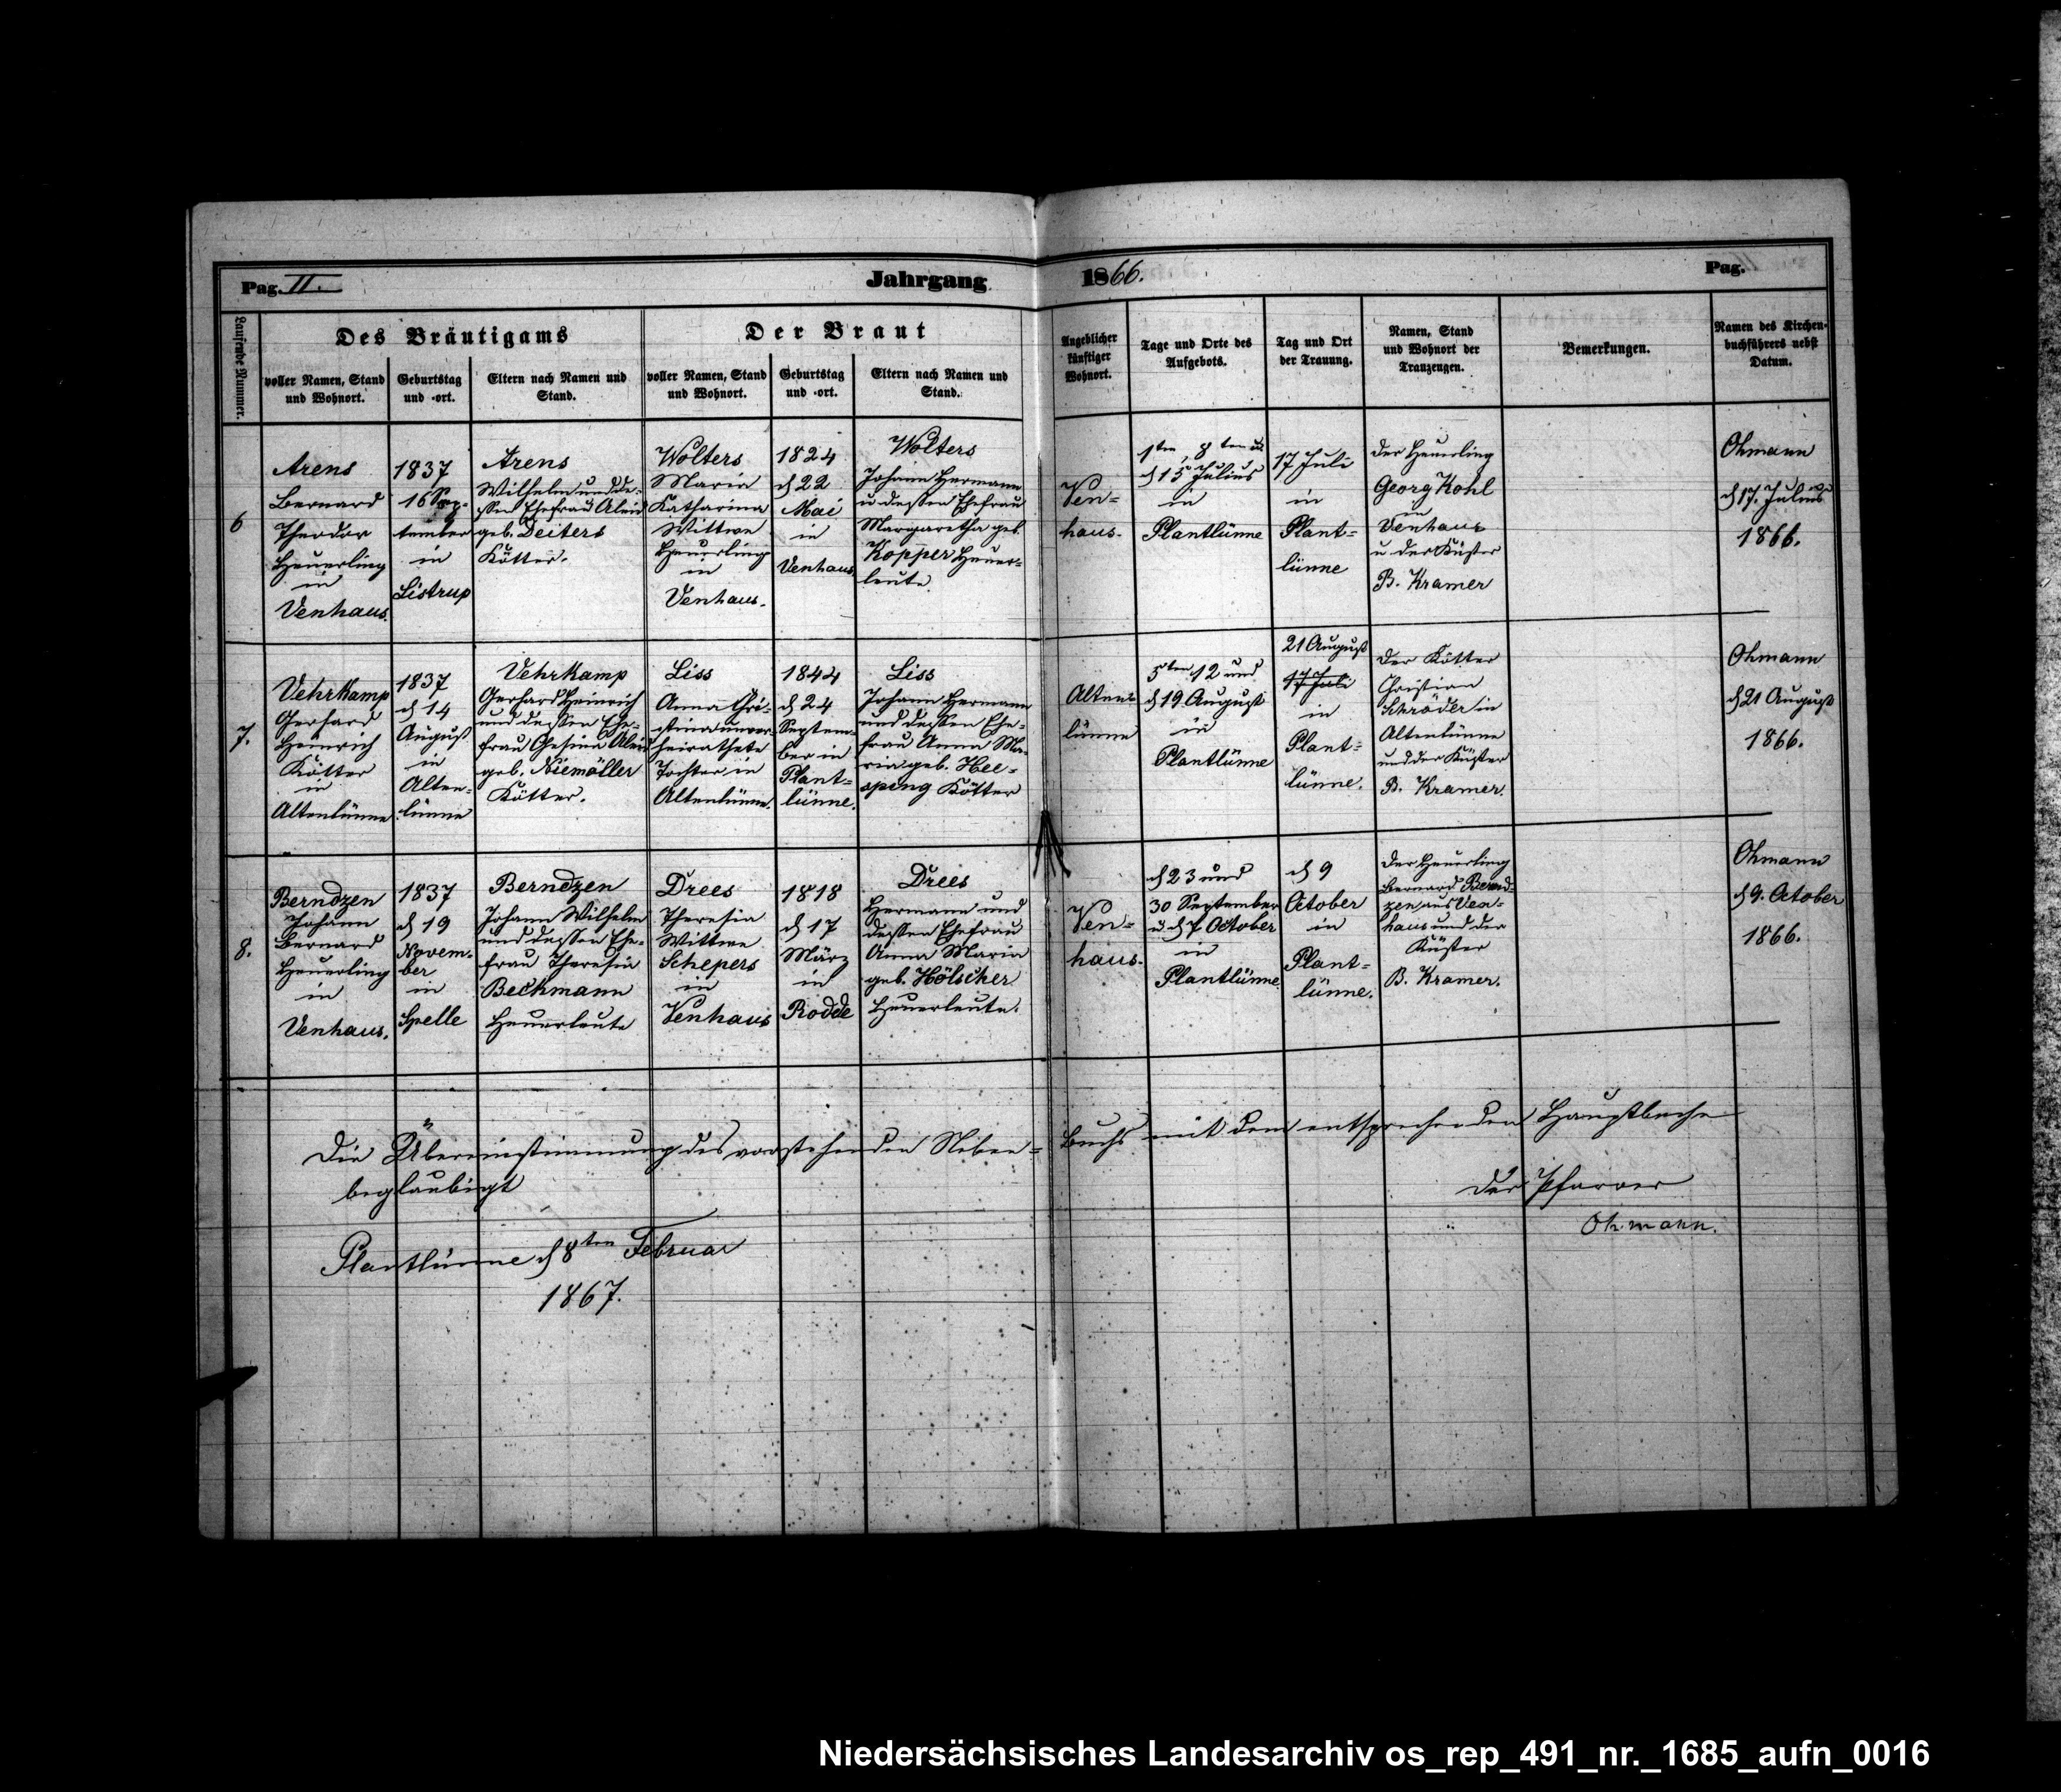 Pag. II.
Jahrgang
1866.
Pag.
Laufende Nummer.
Des Bräutigams
Der Braut
voller Namen, Stand
und Wohnort.
Geburtstag
und -ort.
Eltern nach Namen und
Stand.
voller Namen, Stand
und Wohnort.
Geburtstag
und -ort.
Eltern nach Namen und
Stand.
Angeblicher
künftiger
Wohnort.
Tage und Orte des
Aufgebots.
Tag und Ort
der Trauung.
Namen, Stand
und Wohnort der
Trauzeugen.
Bemerkungen.
Namen des Kirchen-
buchführers nebst
Datum.
6
Arens
Bernard
Theodor
Heuerling
in
Venhaus.
1837
16 Sep-
tember
in
Listrup
Arens
Wilhelm und de-
ssen Ehefrau Aleid
geb. Deiters
Kötter.
Wolters
Maria
Katharina
Wittwe
Heuerling
in
Venhaus.
1824
d 22
Mai
in
Venhaus
Wolters
Johann Hermann
u dessen Ehefrau
Margaretha geb.
Kopper Heuer-
leute
Ven-
haus.
1ten, 8ten u
d 15 Julius
in
Plantlünne
17 Juli
in
Plant-
lünne
der Heuerling
Georg Kohl
in
Venhaus
u der Küster
B. Kramer
Ohmann
d 17. Julius
1866.
7.
Vehrkamp
Gerhard
Heinrich
Kötter
in
Altenlünne
1837
d 14
August
in
Alten-
lünne
Vehrkamp
Gerhard Heinrich
und dessen Ehe-
frau Gesina Aleid
geb. Niemöller
Kötter.
Liss
Anna Chri-
stina unver-
heirathete
Tochter in
Altenlünne.
1844
d 24
Septem-
ber in
Plant-
lünne.
Liss
Johann Hermann
und dessen Ehe-
frau Anna Ma-
ria geb. Hee-
sping Kötter
Alten-
lünne
5ten 12 und
d 19 August
in
Plantlünne
21 August
17 Juli
in
Plant-
lünne.
Der Kötter
Christian
Schröder in
Altenlünne
und der Küster
B. Kramer.
Ohmann
d 21 August
1866.
8.
Berndzen
Johann
Bernard
Heuerling
in
Venhaus.
1837
d 19
Novem-
ber
in
Spelle
Berndzen
Johann Wilhelm
und dessen Ehe-
frau Theresia
Beckmann
Heuerleute
Drees
Theresia
Wittwe
Schepers
in
Venhaus
1818
d 17
März
in
Rodde
Drees
Hermann und
dessen Ehefrau
Anna Maria
geb. Hölscher
Heuerleute.
Ven-
haus.
d 23 und
30 September
u. d 7 October
in
Plantlünne
d 9
October
in
Plant-
lünne.
der Heuerling
Bernard Bernd-
zen aus Ven-
haus und der
Küster
B. Kramer.
Ohmann
d 9. October
1866.
Die Übereinstimmung des vorstehenden Neben- buchs mit dem entsprechenden Hauptbuche
beglaubigt
Der Pfarrer
Ohmann.
Plantlünne d 8ten Februar
1867.
Niedersächsisches Landesarchiv os_rep_491_nr._1685_aufn_0016